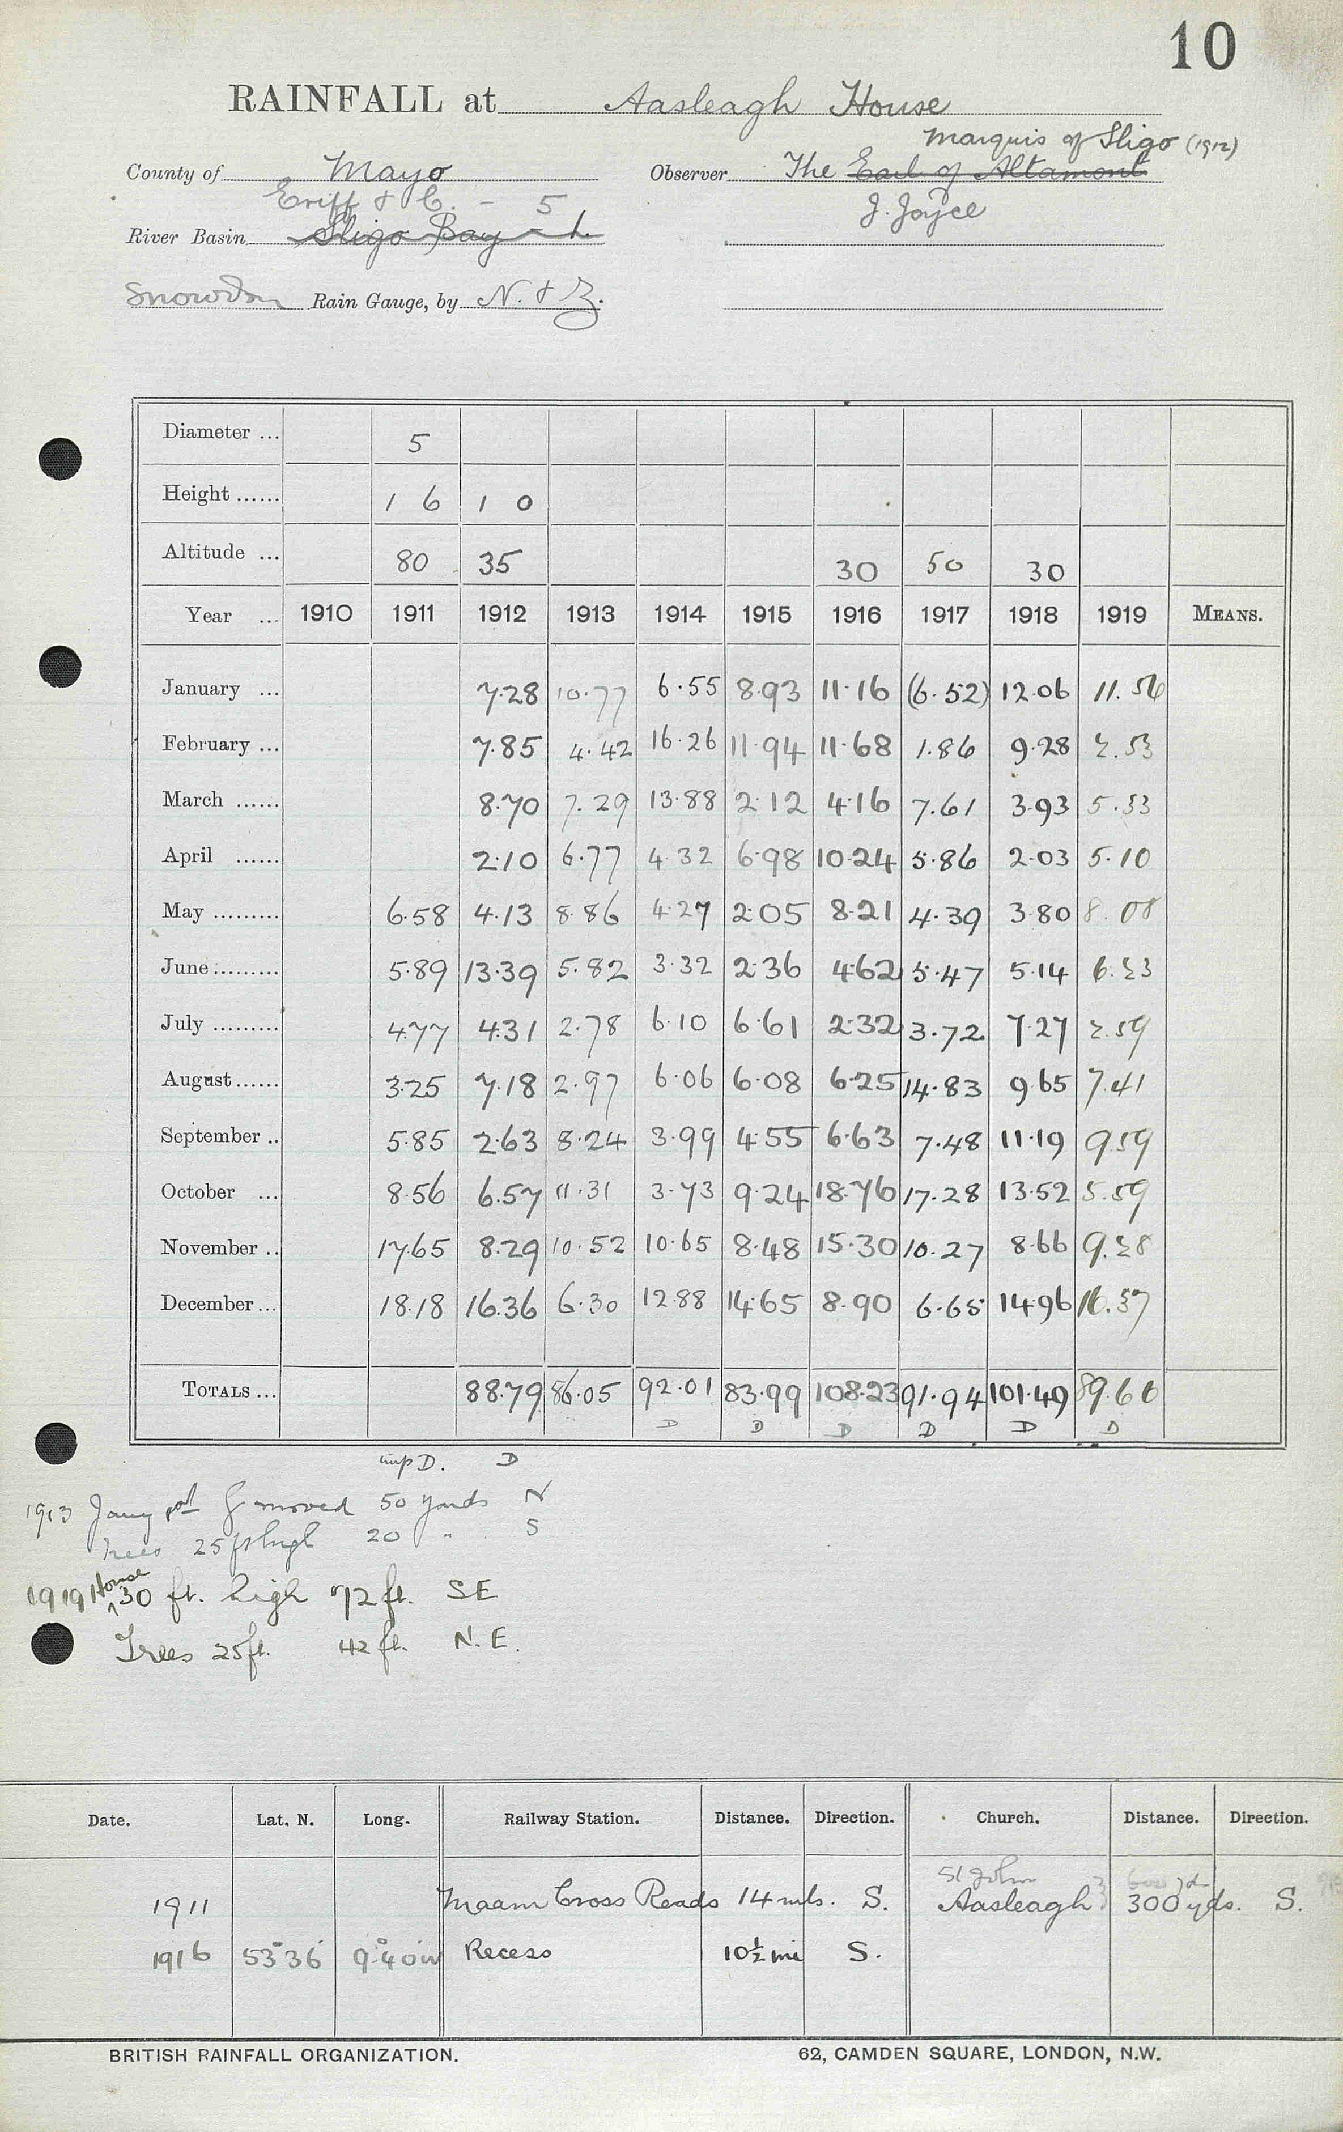 10
RAINFALL at Aasleagh House
Marquis of Sligo (1912)
County of Mayo Observer The Earl of Altamont
Erriff & C. - 5 J. Joyce
River Basin Sligo Bay
Snowdon Rain Gauge, by N. & Z.
Diameter ... 5
Height ...... 1 6 1 0
Altitude ... 80 35 30 50 30
Year ... 1910 1911 1912 1913 1914 1915 1916 1917 1918 1919 MEANS.
January ... 7.28 10.77 6.55 8.93 11.16 (6.52) 12.06 11.56
February ... 7.85 4.42 16.26 11.94 11.68 1.86 9.28 2.53
March ...... 8.70 7.29 13.88 2.12 4.16 7.61 3.93 5.33
April ...... 2.10 6.77 4.32 6.98 10.24 5.86 2.03 5.10
May ......... 6.58 4.13 8.86 4.27 2.05 8.21 4.39 3.80 8.08
June ......... 5.89 13.39 5.82 3.32 2.36 4.62 5.47 5.14 6.23
July ......... 4.77 4.31 2.78 6.10 6.61 2.32 3.72 7.27 2.59
August ...... 3.25 7.18 2.97 6.06 6.08 6.25 14.83 9.65 7.41
September .. 5.85 2.63 8.24 3.99 4.55 6.63 7.48 11.19 9.59
October ... 8.56 6.57 11.31 3.73 9.24 18.76 17.28 13.52 5.59
November .. 17.65 8.29 10.52 10.65 8.48 15.30 10.27 8.66 9.28
December ... 18.18 16.36 6.30 12.88 14.65 8.90 6.65 14.96 16.37
TOTALS ... 88.79 86.05 92.01 83.99 108.23 91.94 101.49 89.66
D D D D D D
imp D. D
1913 Jany 1st G moved 50 yards N
Trees 25 ft high 20 " S
1919 House 30 ft. high 72 ft. SE
Trees 25 ft. 42 ft. N.E.
Date. Lat. N. Long. Railway Station. Distance. Direction. Church. Distance. Direction.
St John
1911 Maam Cross Roads 14 mls. S. Aasleagh 300 yds. S.
1916 53°36' 9°40'W Recess 10½ mi S.
BRITISH RAINFALL ORGANIZATION. 62, CAMDEN SQUARE, LONDON, N.W.